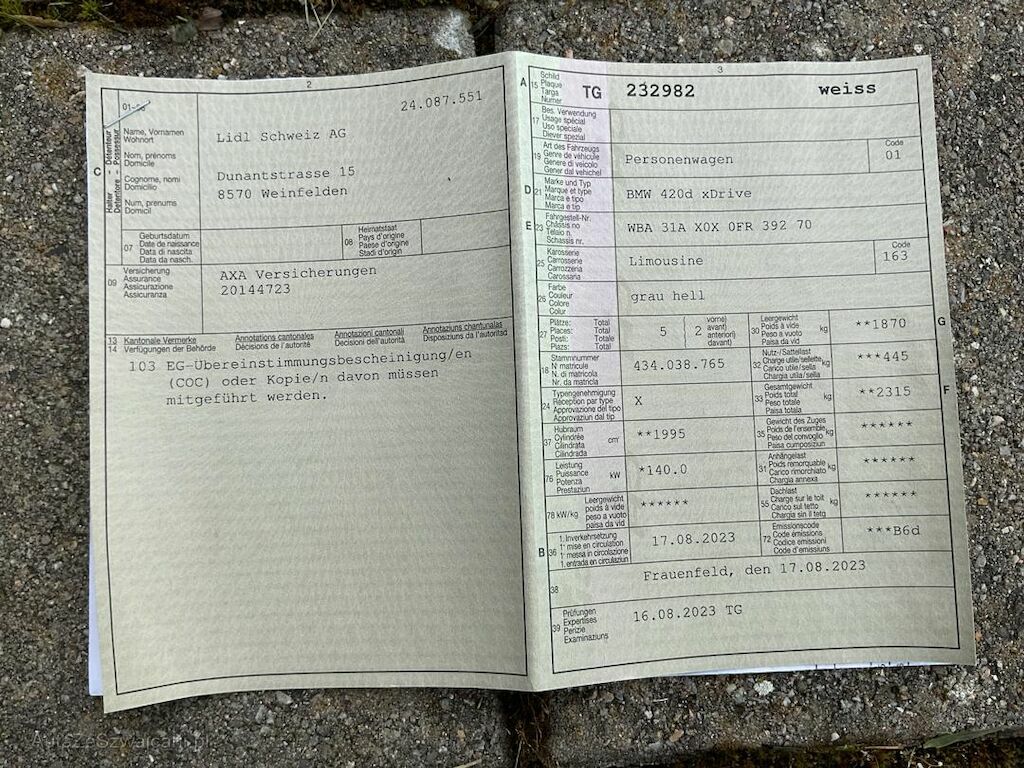 2
01-06
24.087.551
C
Halter - Détenteur
Detentore - Possessur
Name, Vornamen
Wohnort
Nom, prénoms
Domicile
Cognome, nomi
Domicilio
Num, prenums
Domicil
Lidl Schweiz AG
Dunantstrasse 15
8570 Weinfelden
07
Geburtsdatum
Date de naissance
Data di nascita
Data da nasch.
08
Heimatstaat
Pays d'origine
Paese d'origine
Stadi d'origin
09
Versicherung
Assurance
Assicurazione
Assicuranza
AXA Versicherungen
20144723
13 Kantonale Vermerke Annotations cantonales Annotazioni cantonali Annotaziuns chantunalas
14 Verfügungen der Behörde Décisions de l'autorité Decisioni dell'autorità Disposiziuns da l'autoritad
103 EG-Übereinstimmungsbescheinigung/en
(COC) oder Kopie/n davon müssen
mitgeführt werden.
3
A
15
Schild
Plaque
Targa
Numer
TG 232982 weiss
17
Bes. Verwendung
Usage spécial
Uso speciale
Diever spezial
19
Art des Fahrzeugs
Genre de véhicule
Genere di veicolo
Gener dal vehichel
Personenwagen
Code
01
D
21
Marke und Typ
Marque et type
Marca e tipo
Marca e tip
BMW 420d xDrive
E
23
Fahrgestell-Nr.
Châssis no
Telaio n.
Schassis nr.
WBA 31A X0X 0FR 392 70
25
Karosserie
Carrosserie
Carrozzeria
Carossaria
Limousine
Code
163
26
Farbe
Couleur
Colore
Colur
grau hell
27
Plätze: Total
Places: Total
Posti: Totale
Plazs: Total
5
2
vorne)
avant)
anteriori)
davant)
30
Leergewicht
Poids à vide
Peso a vuoto
Paisa da vid
kg
**1870
G
18
Stammnummer
N° matricule
N. di matricola
Nr. da matricla
434.038.765
32
Nutz-/Sattellast
Charge utile/sellette
Carico utile/sella
Chargia utila/sella
kg
***445
24
Typengenehmigung
Réception par type
Approvazione del tipo
Approvaziun dal tip
X
33
Gesamtgewicht
Poids total
Peso totale
Paisa totala
kg
**2315
F
37
Hubraum
Cylindrée
Cilindrata
Cilindrada
cm³
**1995
35
Gewicht des Zuges
Poids de l'ensemble
Peso del convoglio
Paisa cumposiziun
kg
******
76
Leistung
Puissance
Potenza
Prestaziun
kW
*140.0
31
Anhängelast
Poids remorquable
Carico rimorchiato
Chargia annexa
kg
******
78 kW/kg
Leergewicht
poids à vide
peso a vuoto
paisa da vid
******
55
Dachlast
Charge sur le toit
Carico sul tetto
Chargia sin il tetg
kg
******
B
36
1. Inverkehrsetzung
1re mise en circulation
1a messa in circolazione
1. entrada en circulaziun
17.08.2023
72
Emissionscode
Code émissions
Codice emissioni
Code d'emissiuns
***B6d
38
Frauenfeld, den 17.08.2023
39
Prüfungen
Expertises
Perizie
Examinaziuns
16.08.2023 TG
AutozeSzwajcarii.pl